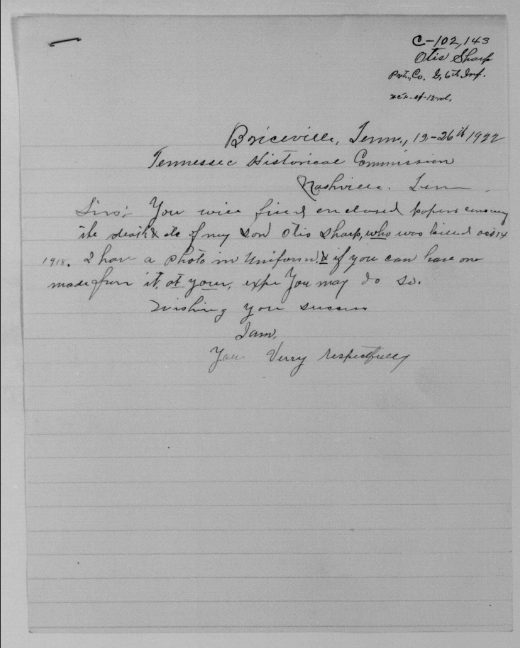 C-102,143
Otis Sharp
Pvt, Co. G, 6th Inf.
Briceville, Tenn., 12-26th 1922
Tennessee Historical Commission
Nashville. Tenn.
Sirs: You will find enclosed papers
the death & etc of my son Otis Sharp, who was killed Oct 14
1918. I have a photo in uniform & if you can have one
made from it, at your, expe You may do so.
Wishing you success
I am,
Your Verry respectfully